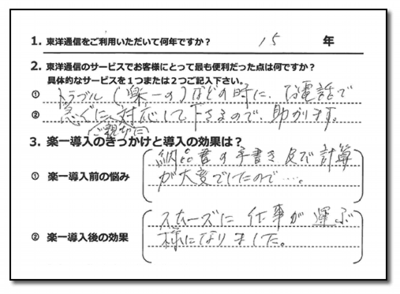 1. 東洋通信をご利用いただいて何年ですか？ 15 年
2. 東洋通信のサービスでお客様にとって最も便利だった点は何ですか？
具体的なサービスを1つまたは2つご記入下さい。
① トラブル（楽一の）などの時に、お電話で
② 急ぐに、対応して下さるので、助かります。
ご親切に
3. 楽一導入のきっかけと導入の効果は？
① 楽一導入前の悩み
納品書の手書き及び計算
が大変でしたので…。
② 楽一導入後の効果
スムーズに仕事が運ぶ
様になりました。